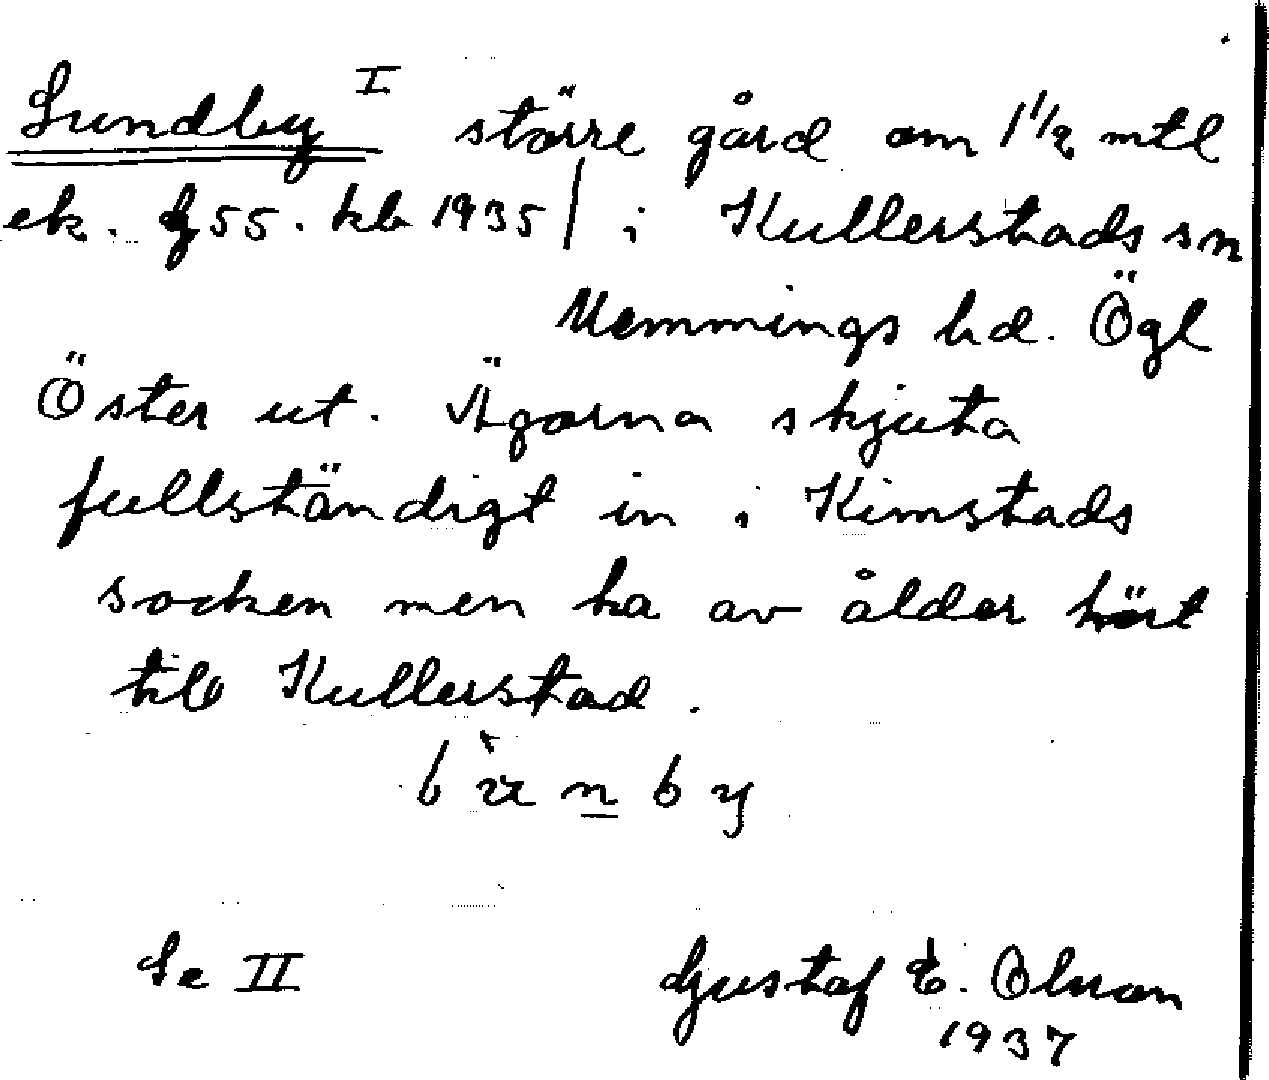 Lundby I större gård om 1 1/2 mtl
ek. 55. kb 1935/ i Kullerstads sn
Memmings hd. Ögl
Öster ut. Ägorna skjuta
fullständigt in i Kimstads
socken men ha av ålder hört
till Kullerstad.
by
Se II Gustaf E. Olsson
1937